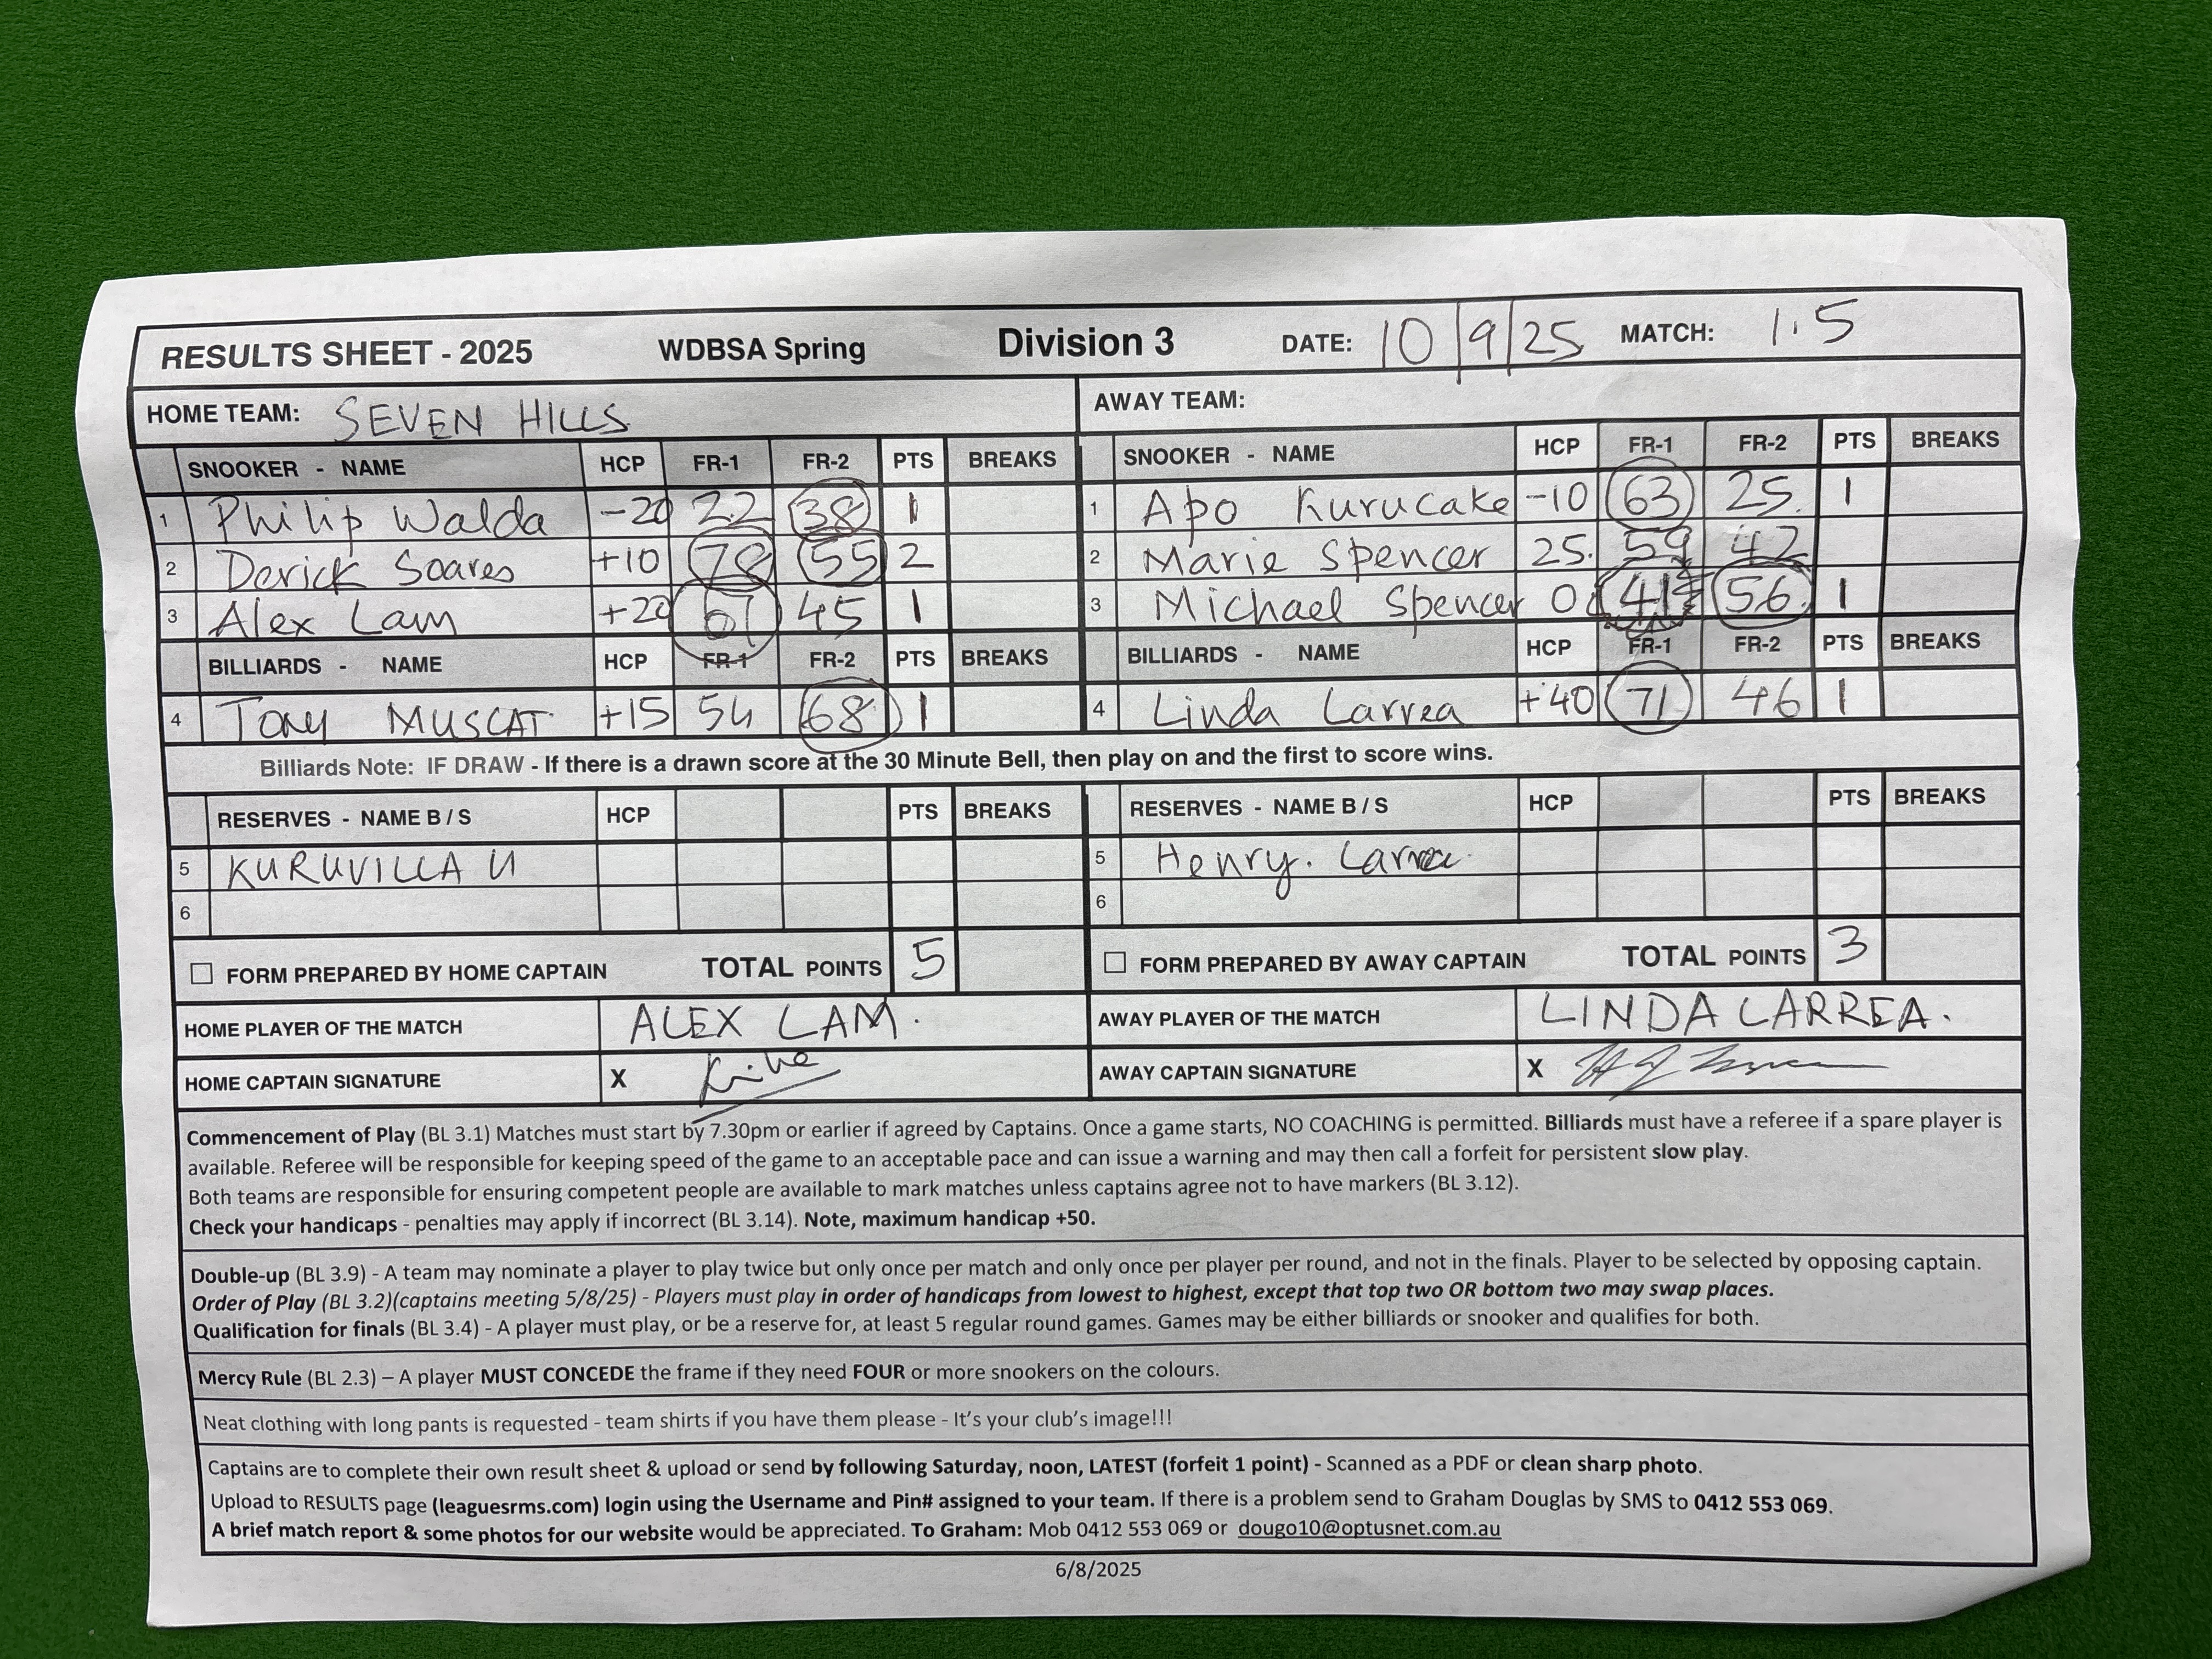 RESULTS SHEET - 2025 WDBSA Spring Division 3 DATE: 10/9/25 MATCH: 1.5
HOME TEAM: SEVEN HILLS AWAY TEAM:
SNOOKER - NAME HCP FR-1 FR-2 PTS BREAKS SNOOKER - NAME HCP FR-1 FR-2 PTS BREAKS
1 Philip Walda -20 22 38 1 1 Apo Kurucake -10 63 25. 1
2 Derick Soares +10 78 55 2 2 Marie Spencer 25. 59 42
3 Alex Lam +20 61 45 1 3 Michael Spencer 0 41 56. 1
BILLIARDS - NAME HCP FR-1 FR-2 PTS BREAKS BILLIARDS - NAME HCP FR-1 FR-2 PTS BREAKS
4 TONY MUSCAT +15 54 68 1 4 Linda Larrea +40 71 46 1
Billiards Note: IF DRAW - If there is a drawn score at the 30 Minute Bell, then play on and the first to score wins.
RESERVES - NAME B / S HCP PTS BREAKS RESERVES - NAME B / S HCP PTS BREAKS
5 KURUVILLA 5 Henry. Larrea.
6 6
FORM PREPARED BY HOME CAPTAIN TOTAL POINTS 5 FORM PREPARED BY AWAY CAPTAIN TOTAL POINTS 3
HOME PLAYER OF THE MATCH ALEX LAM. AWAY PLAYER OF THE MATCH LINDA LARREA.
HOME CAPTAIN SIGNATURE X AWAY CAPTAIN SIGNATURE X
Commencement of Play (BL 3.1) Matches must start by 7.30pm or earlier if agreed by Captains. Once a game starts, NO COACHING is permitted. Billiards must have a referee if a spare player is
available. Referee will be responsible for keeping speed of the game to an acceptable pace and can issue a warning and may then call a forfeit for persistent slow play.
Both teams are responsible for ensuring competent people are available to mark matches unless captains agree not to have markers (BL 3.12).
Check your handicaps - penalties may apply if incorrect (BL 3.14). Note, maximum handicap +50.
Double-up (BL 3.9) - A team may nominate a player to play twice but only once per match and only once per player per round, and not in the finals. Player to be selected by opposing captain.
Order of Play (BL 3.2)(captains meeting 5/8/25) - Players must play in order of handicaps from lowest to highest, except that top two OR bottom two may swap places.
Qualification for finals (BL 3.4) - A player must play, or be a reserve for, at least 5 regular round games. Games may be either billiards or snooker and qualifies for both.
Mercy Rule (BL 2.3) – A player MUST CONCEDE the frame if they need FOUR or more snookers on the colours.
Neat clothing with long pants is requested - team shirts if you have them please - It's your club's image!!!
Captains are to complete their own result sheet & upload or send by following Saturday, noon, LATEST (forfeit 1 point) - Scanned as a PDF or clean sharp photo.
Upload to RESULTS page (leaguesrms.com) login using the Username and Pin# assigned to your team. If there is a problem send to Graham Douglas by SMS to 0412 553 069.
A brief match report & some photos for our website would be appreciated. To Graham: Mob 0412 553 069 or dougo10@optusnet.com.au
6/8/2025